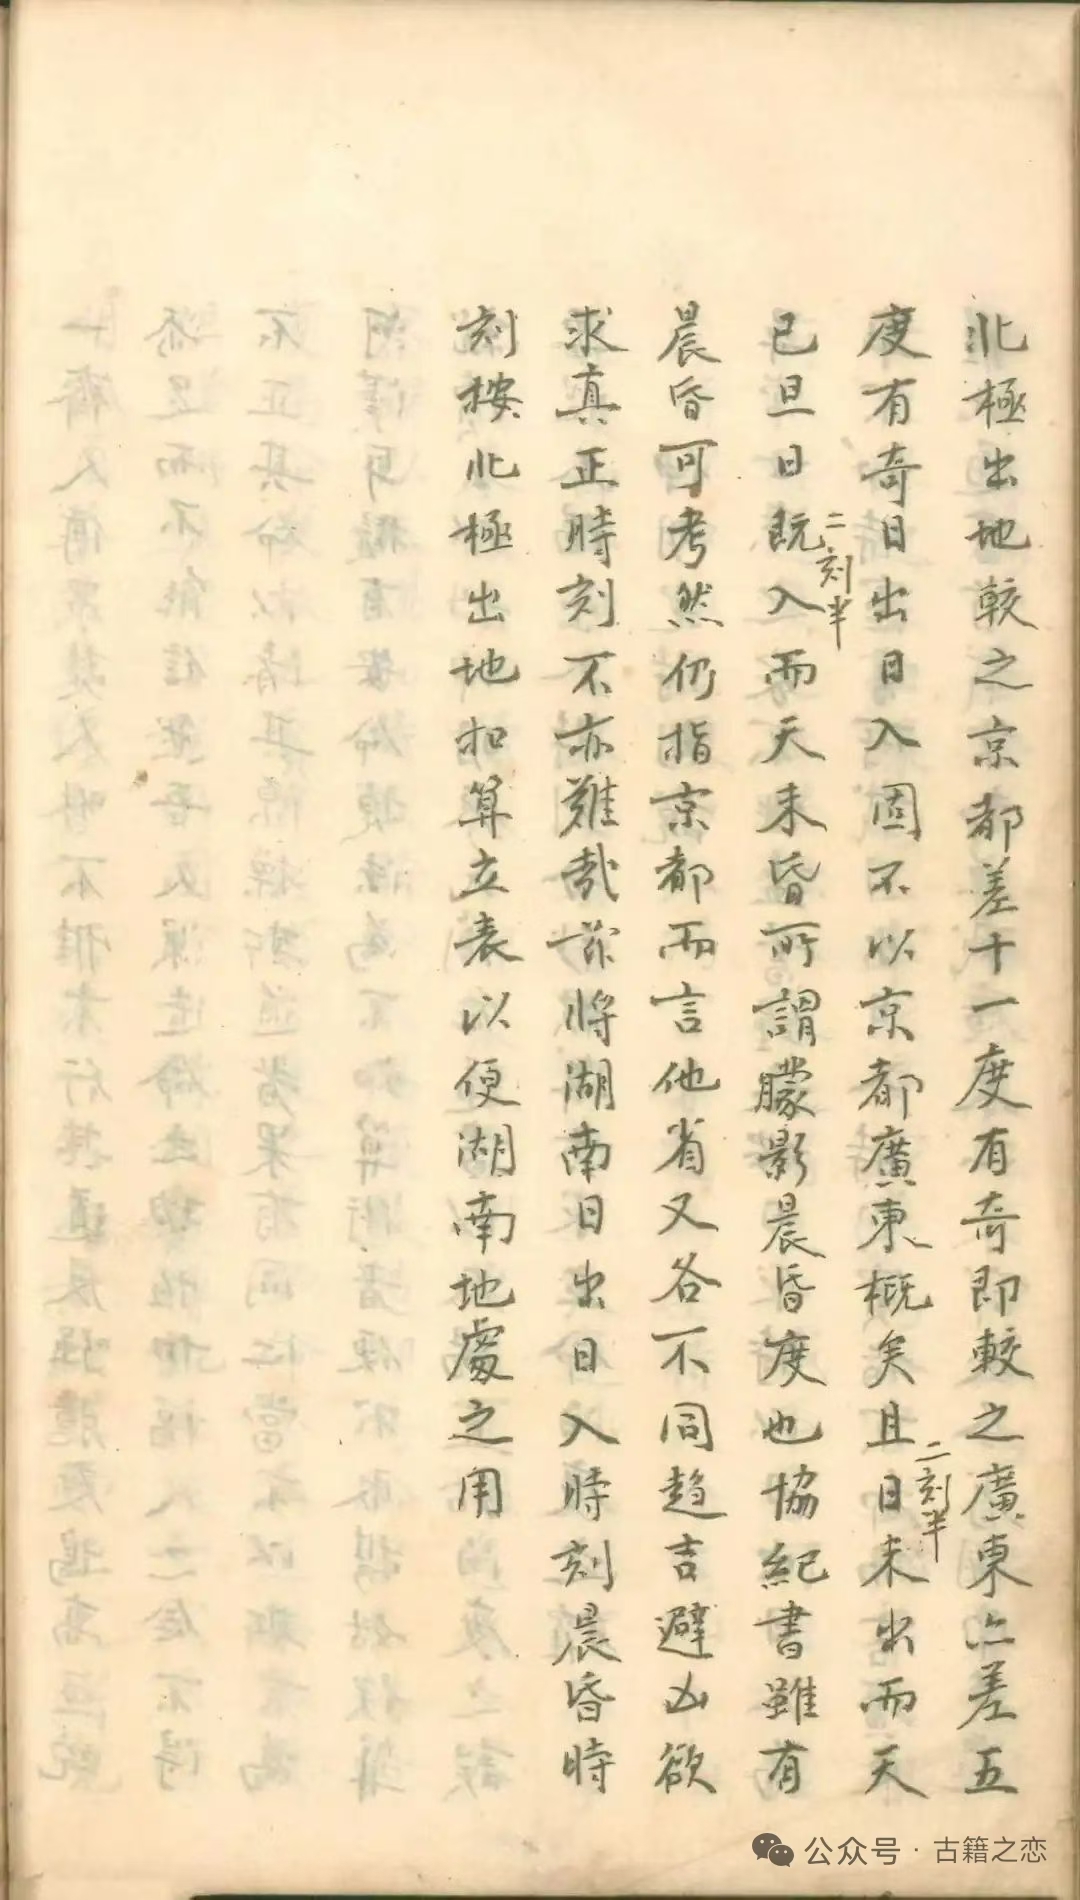 北極出地較之京都差十一度有奇即較之廣東亦差五
度有奇日出日入固不以京都廣東概矣且日未出而天
二刻半
已旦日既入而天未昏所謂朦影晨昏度也協紀書雖有
二刻半
晨昏可考然仍指京都而言他省又各不同趨吉避凶欲
求真正時刻不亦難哉茲將湖南日出日入時刻晨昏時
刻按北極出地扣算立表以便湖南地處之用
公众号·古籍之恋